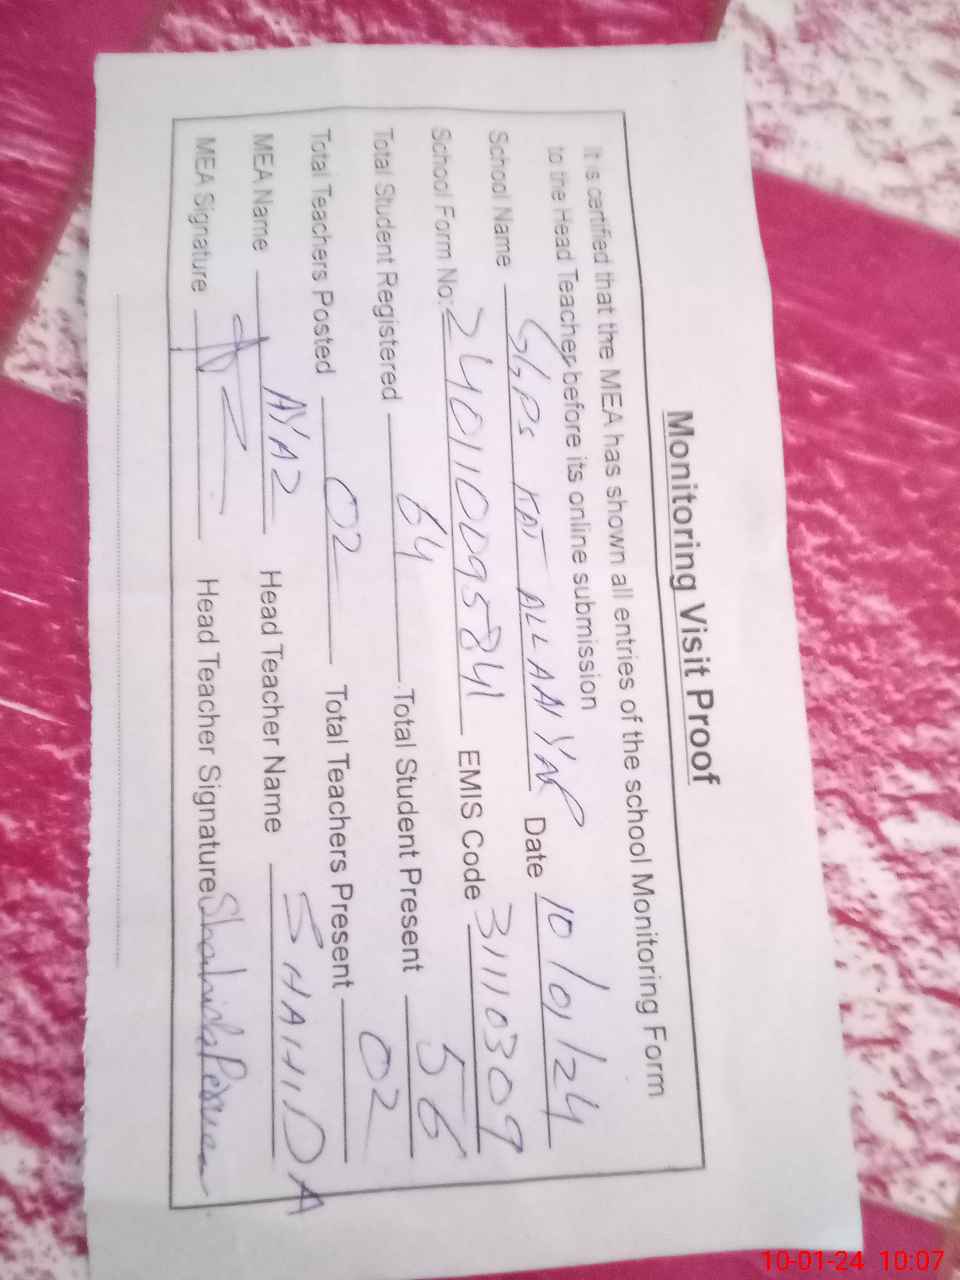 Monitoring Visit Proof
It is certified that the MEA has shown all entries of the school Monitoring Form
to the Head Teacher before its online submission
School Name GGPS KAT ALLAHYAR Date 10/01/24
School Form No: 240110095841 EMIS Code 31110309
Total Student Registered 64 Total Student Present 56
Total Teachers Posted 02 Total Teachers Present 02
MEA Name AYAZ Head Teacher Name SHAHIDA
MEA Signature Head Teacher Signature Shahida Perveen
10-01-24 10:07